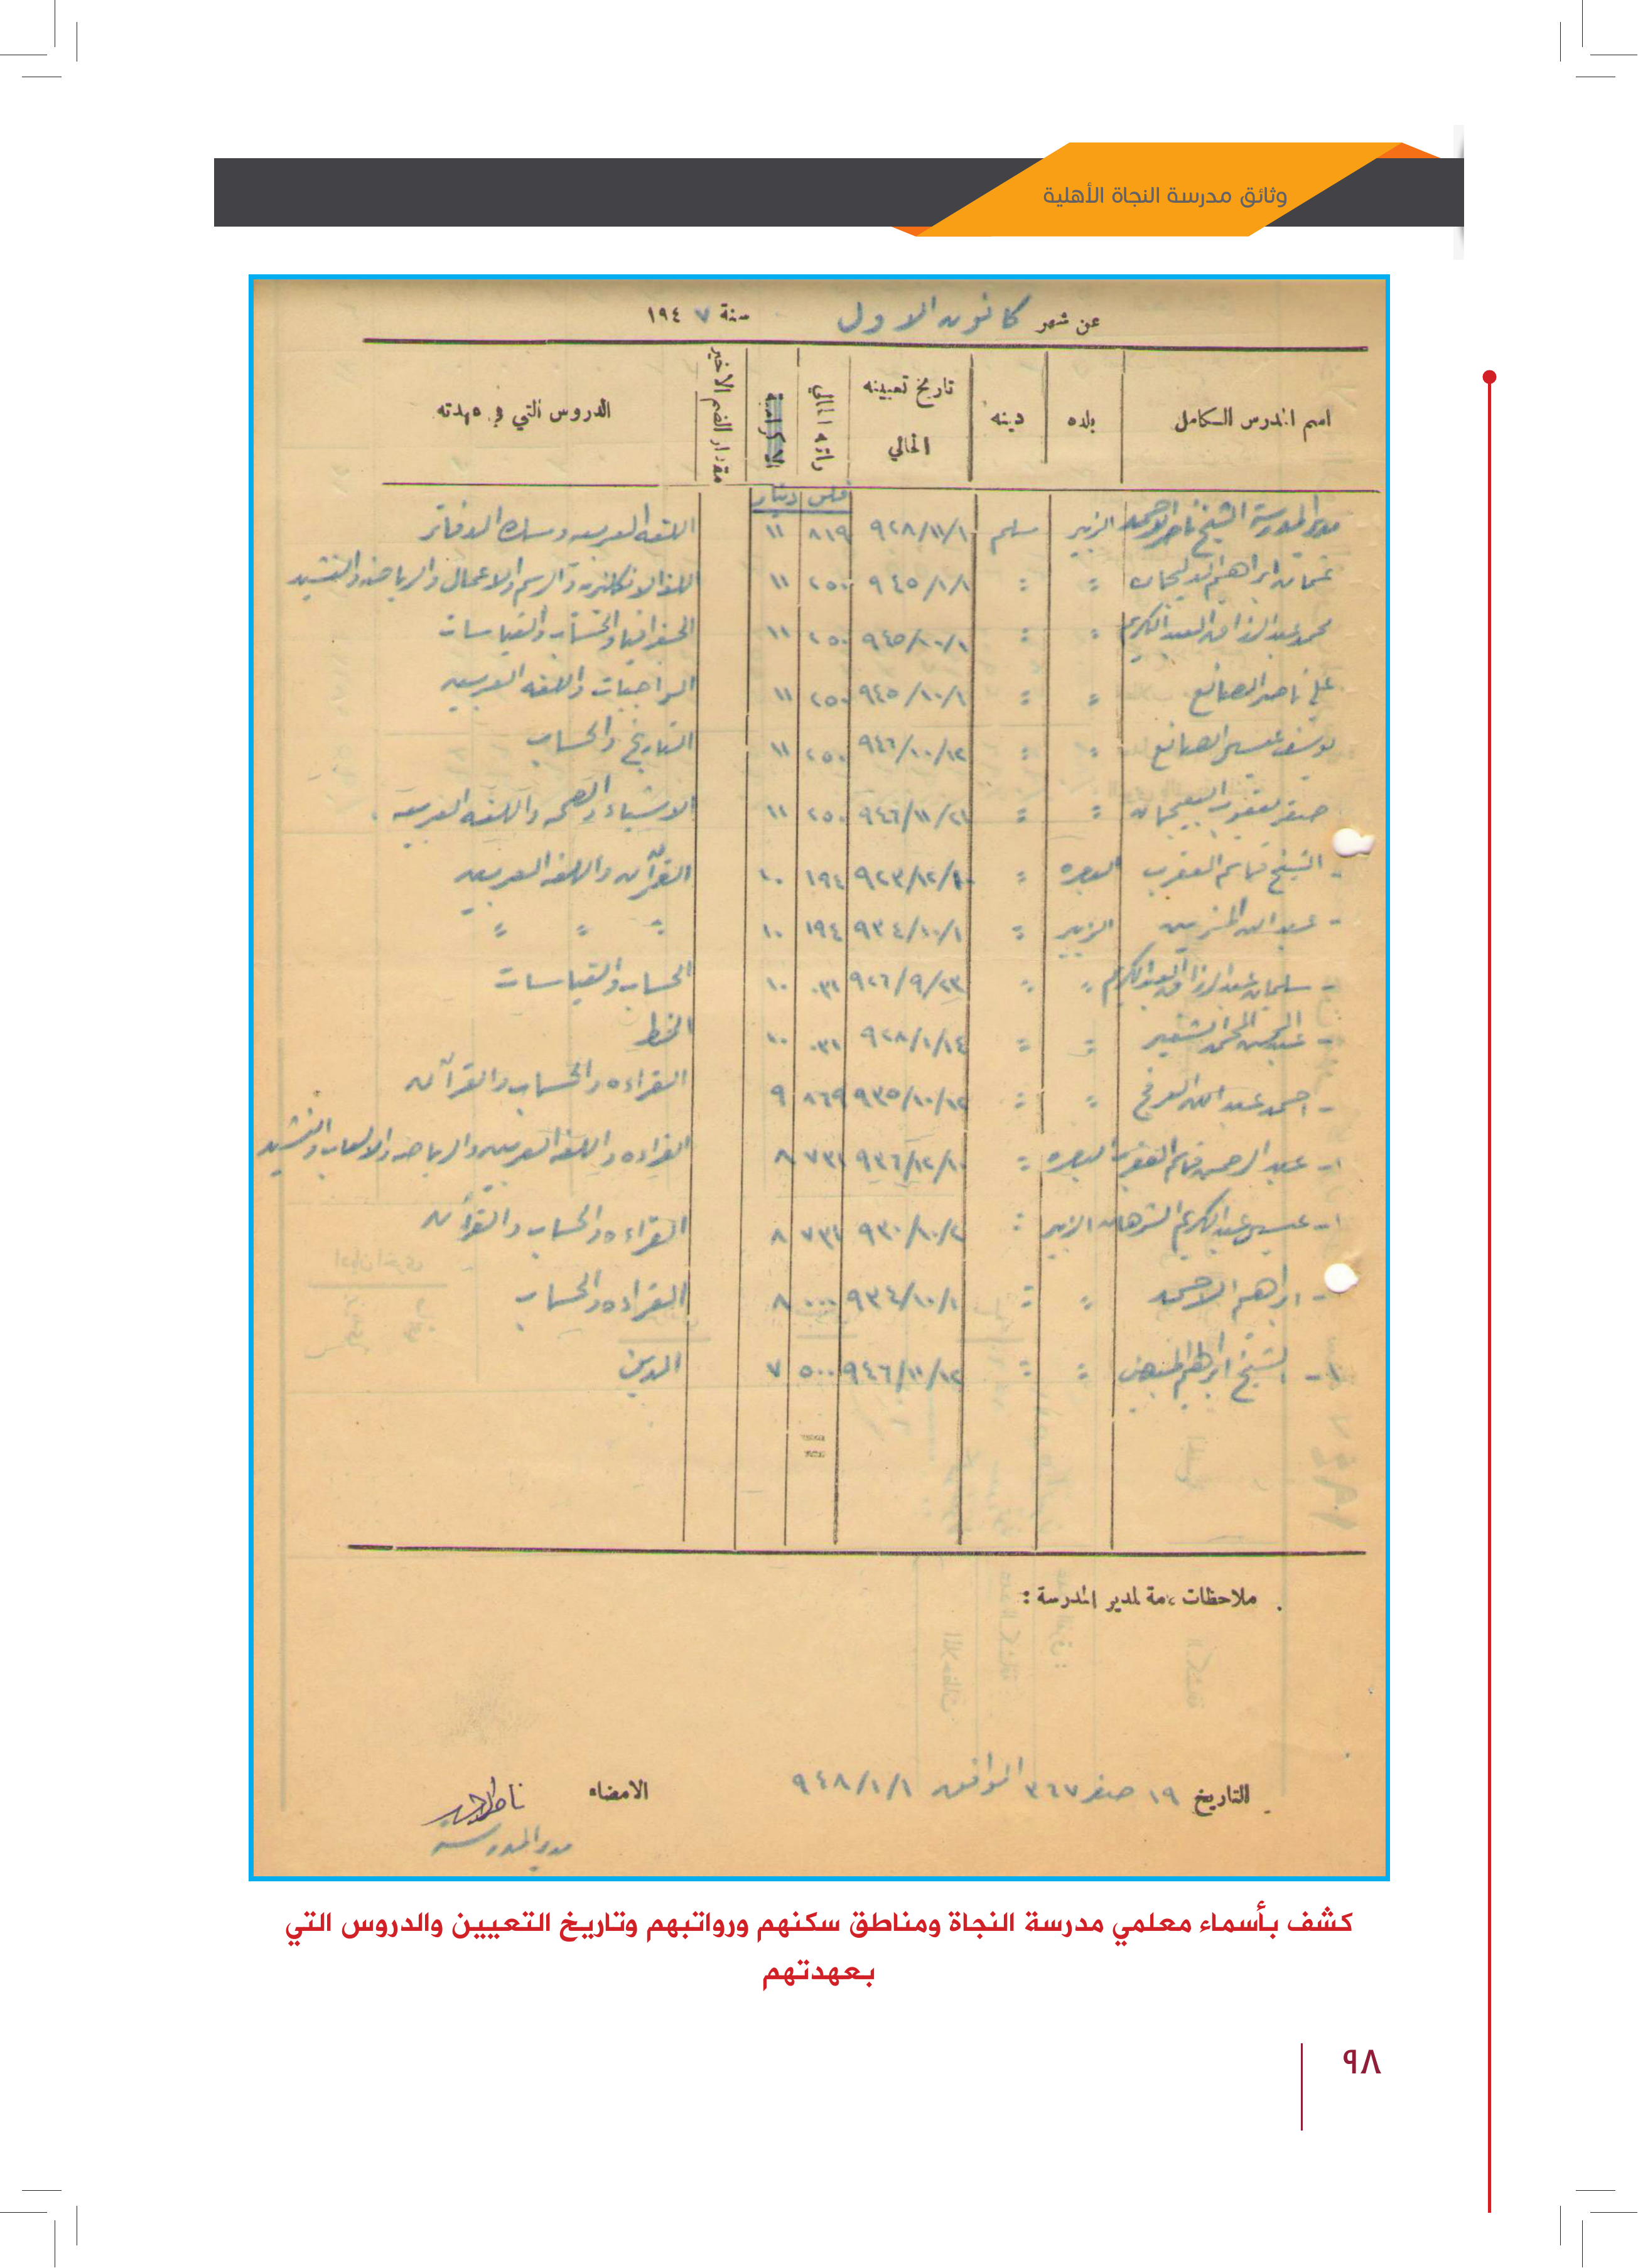 وثائق مدرسة النجاة الأهلية
عن شهر كانون الاول سنة ١٩٤٧
اسم المدرس الكامل بلده دينه تاريخ تعيينه الحالي راتبه الحالي الاكرامية مقدار الضم الاخير الدروس التي في عهدته
فلس دينار
مدير المدرسة الشيخ ناصر الاحمد الزبير مسلم ٩٢٨/١١/١ ٨١٩ ١١ اللغه العربيه ومسك الدفاتر
عثمان ابراهيم : : ٩٤٥/١/١ ٢٥٠ ١١ اللغه الانكليزيه والرسم والاعمال والرياضه والنشيد
محمد عبد الرزاق العبد الكريم : : ٩٤٥/١٠/١ ٢٥٠ ١١ الجغرافيا والحساب والقياسات
علي ناصر الصانع : : ٩٤٥/١٠/١ ٢٥٠ ١١ الواجبات واللغه العربيه
يوسف عيسى الصانع : : ٩٤٦/١٠/١٢ ٢٥٠ ١١ التاريخ والحساب
صقر يعقوب : : ٩٤٦/١١/٢١ ٢٥٠ ١١ الاشياء والصحه واللغه العربيه .
- الشيخ قاسم العقرب البصره : ٩٢٣/١٢/١٠ ١٩٤ ١٠ القرآن واللغه العربيه
- عبد الله المزين الزبير : ٩٣٤/١٠/١ ١٩٤ ١٠ : : :
- سليمان عبد الرزاق العبد الكريم : : ٩٢٦/٩/٢٣ ٠٣١ ١٠ الحساب والقياسات
- عبد المحسن المحمد الشقير : : ٩٢٨/١/١٤ ٠٣١ ١٠ الخط
- احمد عبد الله العرفج : : ٩٣٥/١٠/١٢ ٨٦٩ ٩ القراءه والحساب والقرآن
١- عبد الرحمن قاسم العقرب البصره : ٩٣٦/١٢/١٠ ٧٣١ ٨ القراءه واللغه العربيه والرياضه والالعاب والنشيد
١- عيسى عبد الكريم الشرهان الزبير : ٩٣٠/١٠/٢ ٧٣١ ٨ القراءه والحساب والقرآن
- ابراهيم الاحمد : : ٩٣٤/١٠/١ ٠٠٠ ٨ القراءه والحساب
١- الشيخ ابراهيم المبيض : : ٩٤٦/١٠/١٢ ٥٠٠ ٧ الدين
ملاحظات عامة لمدير المدرسة :
التاريخ ١٩ صفر ٣٦٧ الموافق ٩٤٨/١/١ الامضاء ناصر الاحمد
مدير المدرسة
كشف بأسماء معلمي مدرسة النجاة ومناطق سكنهم ورواتبهم وتاريخ التعيين والدروس التي
بعهدتهم
٩٨